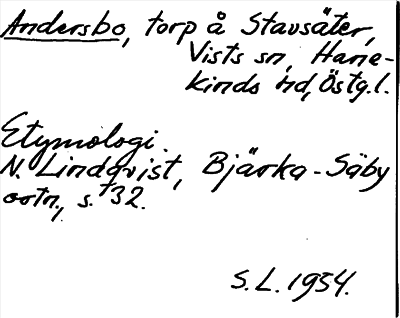 Andersbo, torp å Stavsäter,
Vists sn, Hane-
kinds hd, Östg.l.
Etymologi.
N. Lindqvist, Bjärka-Säby
ortn., s. 132.
S.L. 1954.